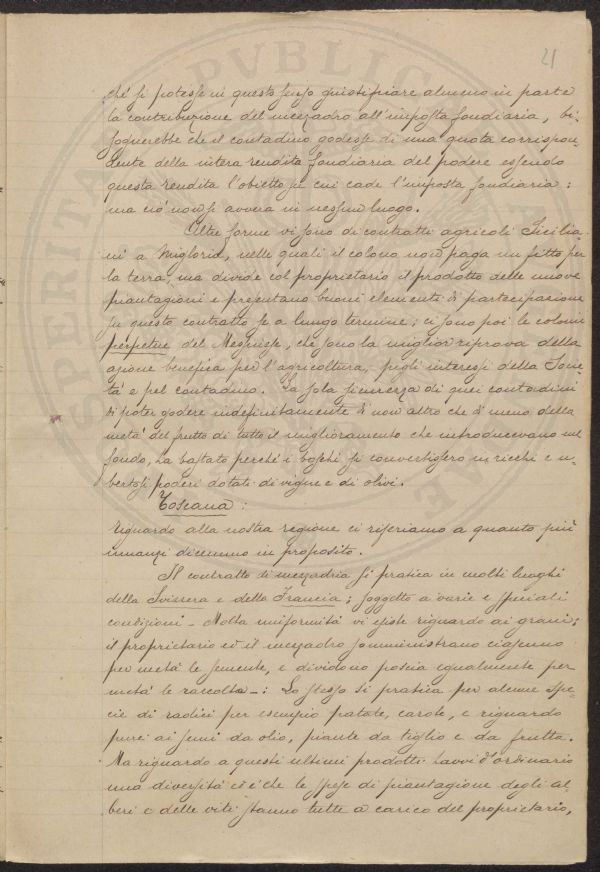 21
chè si potesse in questo senso giustificare almeno in parte
la contribuzione del mezzadro all'imposta fondiaria, bi-
sognerebbe che il contadino godesse di una quota corrispon-
dente della intera rendita fondiaria del podere essendo
questa rendita l'obietto su cui cade l'imposta fondiaria:
ma ciò non si avvera in nessun luogo.
Altre forme vi sono di contratti agricoli Sicilia-
ni a Miglioria, nelle quali il colono non paga un fitto per
la terra, ma divide col proprietario il prodotto delle nuove
piantagioni e presentano buoni elementi di partecipazione
su questo contratto se a lungo termine; ci sono poi le colonie
perpetue del Messinese, che sono la miglior riprova della
azione benefica per l'agricoltura, per gli interessi della Socie-
tà e pel contadino. La sola sicurezza di quei contadini
di poter godere indefinitamente di non altro che di meno della
metà del frutto di tutto il miglioramento che introducevano nel
fondo, ha bastato perchè i boschi si convertissero in ricchi e u-
bertosi poderi dotati di vigne e di olivi.
Toscana:
riguardo alla nostra regione ci riferiamo a quanto più
innanzi diremmo in proposito.
Il contratto di mezzadria si pratica in molti luoghi
della Svissera e della Francia; soggetto a varie e speciali
condizioni - Molta uniformità vi esiste riguardo ai grani;
il proprietario ed il mezzadro somministrano ciascuno
per metà le semente, e dividono poscia egualmente per
metà le raccolta -: Lo stesso si pratica per alcune spe-
cie di radici per esempio patate, carote, e riguardo
pure ai semi da olio, piante da tiglio e da frutta.
Ma riguardo a questi ultimi prodotti havvi d'ordinario
una diversità ed è che le spese di piantagione degli al-
beri e delle viti stanno tutte a carico del proprietario,